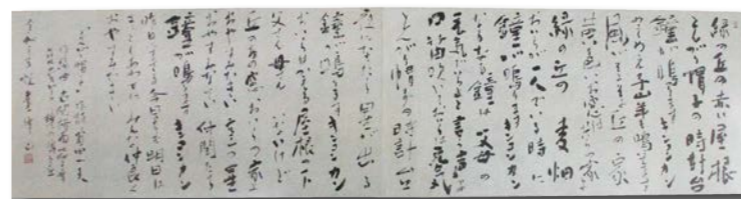 緑の丘の赤い屋根
とんがり帽子の時計台
鐘が鳴ります キンコンカン
メーメー子山羊も啼いてます
風がそよそよ丘の家
黄色いお窓はおいらの家よ
緑の丘の麦畑
おいらが一人でいる時に
鐘が鳴ります キンコンカン
なるなる鐘は父母の
元気でいろよと言う声よ
口笛吹いておいらは元気
とんがり帽子の時計台
夜になったら星が出る
鐘が鳴ります キンコンカン
おいらはかえる屋根の下
父さん母さんいないけど
丘のあの窓おいらの家よ
おやすみなさい 空の星
おやすみなさい 仲間たち
鐘が鳴ります キンコンカン
昨日にまさる今日よりも 明日は
もっとしあわせに みんな仲よく
おやすみなさい